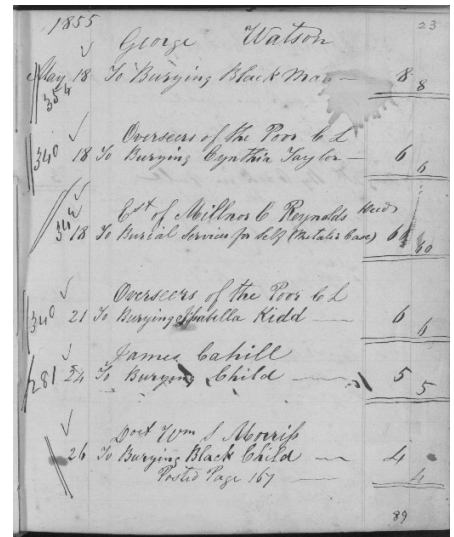 1855 23
George Watson
May 18 To Burying Black Man — 8 8
354
Overseers of the Poor C L
340 18 To Burying Cynthia Taylor — 6 6
Est of Millnor C Reynolds Decd
344 18 To Burial Services for Self (Metalic Case) 60
Overseers of the Poor C L
340 21 To Burying Isabella Kidd — 6 6
James Cahill
281 24 To Burying Child — 5 5
Doct Wm S Morriss
26 To Burying Black Child — 4 4
Posted Page 167
89